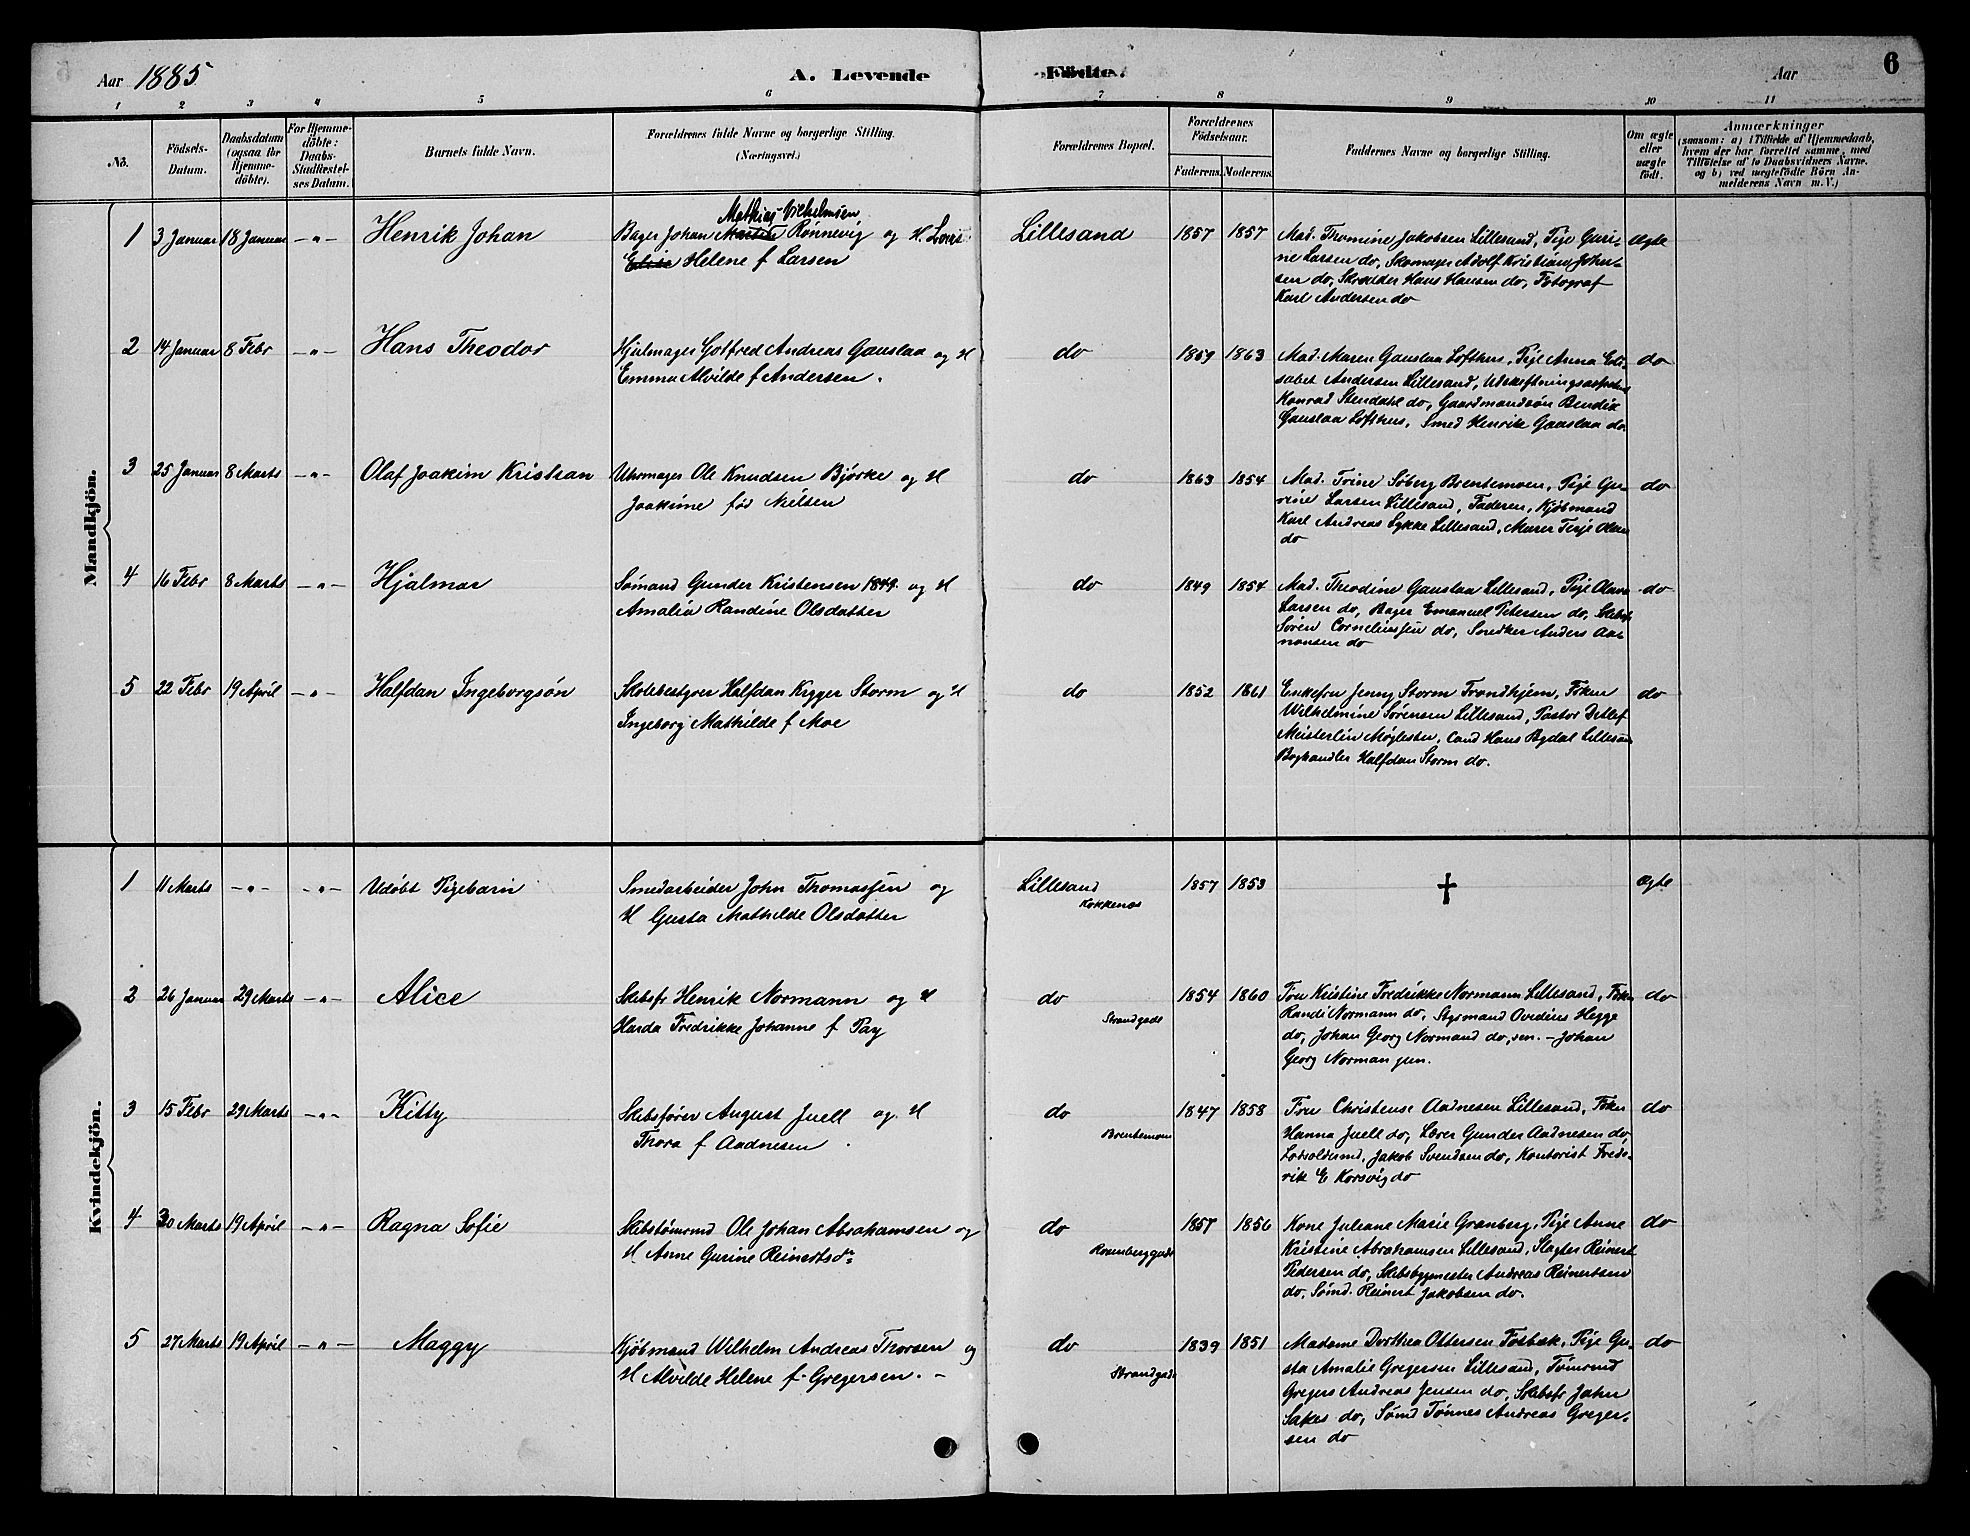 Aar 1885 A. Levende Födte. Aar 6
1 2 3 4 5 6 7 8 9 10 11
No.
Födsels-
Datum.
Daabsdatum
(ogsaa for
Hjemme-
döbte).
For Hjemme-
döbte:
Daabs-
Stadfæstel-
ses Datum.
Barnets fulde Navn.
Forældrenes fulde Navne og borgerlige Stilling.
(Næringsvei.)
Forældrenes Bopæl.
Forældrenes
Födselsaar.
Faderens. Moderens.
Faddernes Navne og borgerlige Stilling.
Om ægte
eller
uægte
födt.
Anmærkninger
(saasom: a) i Tilfælde af Hjemmedaab,
hvem der har forrettet samme, med
Tilföielse af to Daabsvidners Navne.
og b) ved uægtefödte Börn An-
melderens Navn m. V.)
Mandkjön.
1 3 Januar 18 Januar -"- Henrik Johan
Mathias Vilhelmsen
Bager Johan Rønnevig og H. Lovis
Helene f Larsen
Lillesand 1857 1857
Mad. Thomine Jakobsen Lillesand, Pige Guri-
ne Larsen do, Skomager Adolf Kristian John-
sen do, Skrædder Hans Hansen do, Fotograf
Karl Andersen do
Ægte
2 14 Januar 8 Febr -"- Hans Theodor
Hjulmager Gotfred Andreas Gauslaa og H
Emma Alvilde f Andersen.
do 1859 1863
Mad. Maren Gauslaa Lofthus, Pige Anna Eli-
sabet Andersen Lillesand,
Konrad Stendahl do, Gaardmandsøn Bendix
Gauslaa Lofthus, Smed Henrik Gauslaa do
do
3 25 Januar 8 Marts -"- Olaf Joakim Kristian
Uhrmager Ole Knudsen Bjørke og H
Joakime fød Nielsen
do 1863 1854
Mad. Trine Søberg Brentemoen, Pige Gu-
rine Larsen Lillesand, Faderen, Kjøbmand
Karl Andreas Lykke Lillesand, Murer Terje Olsen
do
do
4 16 Febr 8 Marts -"- Hjalmar
Sømand Gunder Kristensen 1849 og H
Amalia Randine Olsdatter
do 1849 1854
Mad. Theodine Gauslaa Lillesand, Pige Olava
Larsen do, Bager Emanuel Petersen do, Skibsf.
Søren Corneliussen do, Snedker Anders Aa-
nonsen do
do
5 22 Febr 19 April -"- Halfdan Ingeborgsøn
Skolebestyrer Halfdan Kryger Storm og H
Ingeborg Mathilde f Moe
do 1852 1861
Enkefru Jenny Storm Trondhjem, Frøken
Wilhelmine Sørensen Lillesand, Pastor Detlef
Meisterlin Møglestu, Cand Hans Bydal Lillesand
Boghandler Halfdan Storm do.
do
Kvindekjön.
1 11 Marts -"- -"- Udøbt Pigebarn
Smedarbeider John Thomassen og
H Gusta Mathilde Olsdatter
Lillesand
Kokkenes
1857 1853 † Ægte
2 26 Januar 29 Marts -"- Alice
Skibsfr Henrik Normann og H
Harda Fredrikke Johanne f Pay
do
Strandgade
1854 1860
Fru Kristine Fredrikke Normann Lillesand, Frøken
Randi Normann do, Styrmand Ovedius Hegge
do, Johan Georg Normand do, sen. – Johan
Georg Norman jun.
do
3 15 Febr 29 Marts -"- Kitty
Skibsfører August Juell og H
Thora f Aadnesen
do
Brentemoen
1847 1858
Fru Christense Aadnesen Lillesand, Frøken
Hanna Juell do, Lærer Gunder Aadnesen do,
Lodsoldermd, Jakob Svendsen do, Kontorist Frede-
rik E Korsvig do
do
4 30 Marts 19 April -"- Ragna Sofie
Skibstømrmd Ole Johan Abrahamsen og
H Anne Gurine Reinertsdr
do
Rosenberggade
1857 1856
Kone Juliane Marie Granberg, Pige Anne
Kristine Abrahamsen Lillesand, Slagter Reinert
Pedersen do, Skibsbygmester Andreas Reinertsen
do, Sømd. Reinert Jakobsen do.
do
5 27 Marts 19 April -"- Maggy
Kjøbmand Wilhelm Andreas Thorsen og
H Alvilde Helene f. Gregersen. –
do
Strandgade
1839 1851
Madame Dorthea Ottersen Fosbæk, Pige Gu-
sta Amalie Gregersen Lillesand, Tømrmd
Gregers Andreas Jensen do, Skibsfr John
do, Sømd Tønnes Andreas Greger-
sen do
do